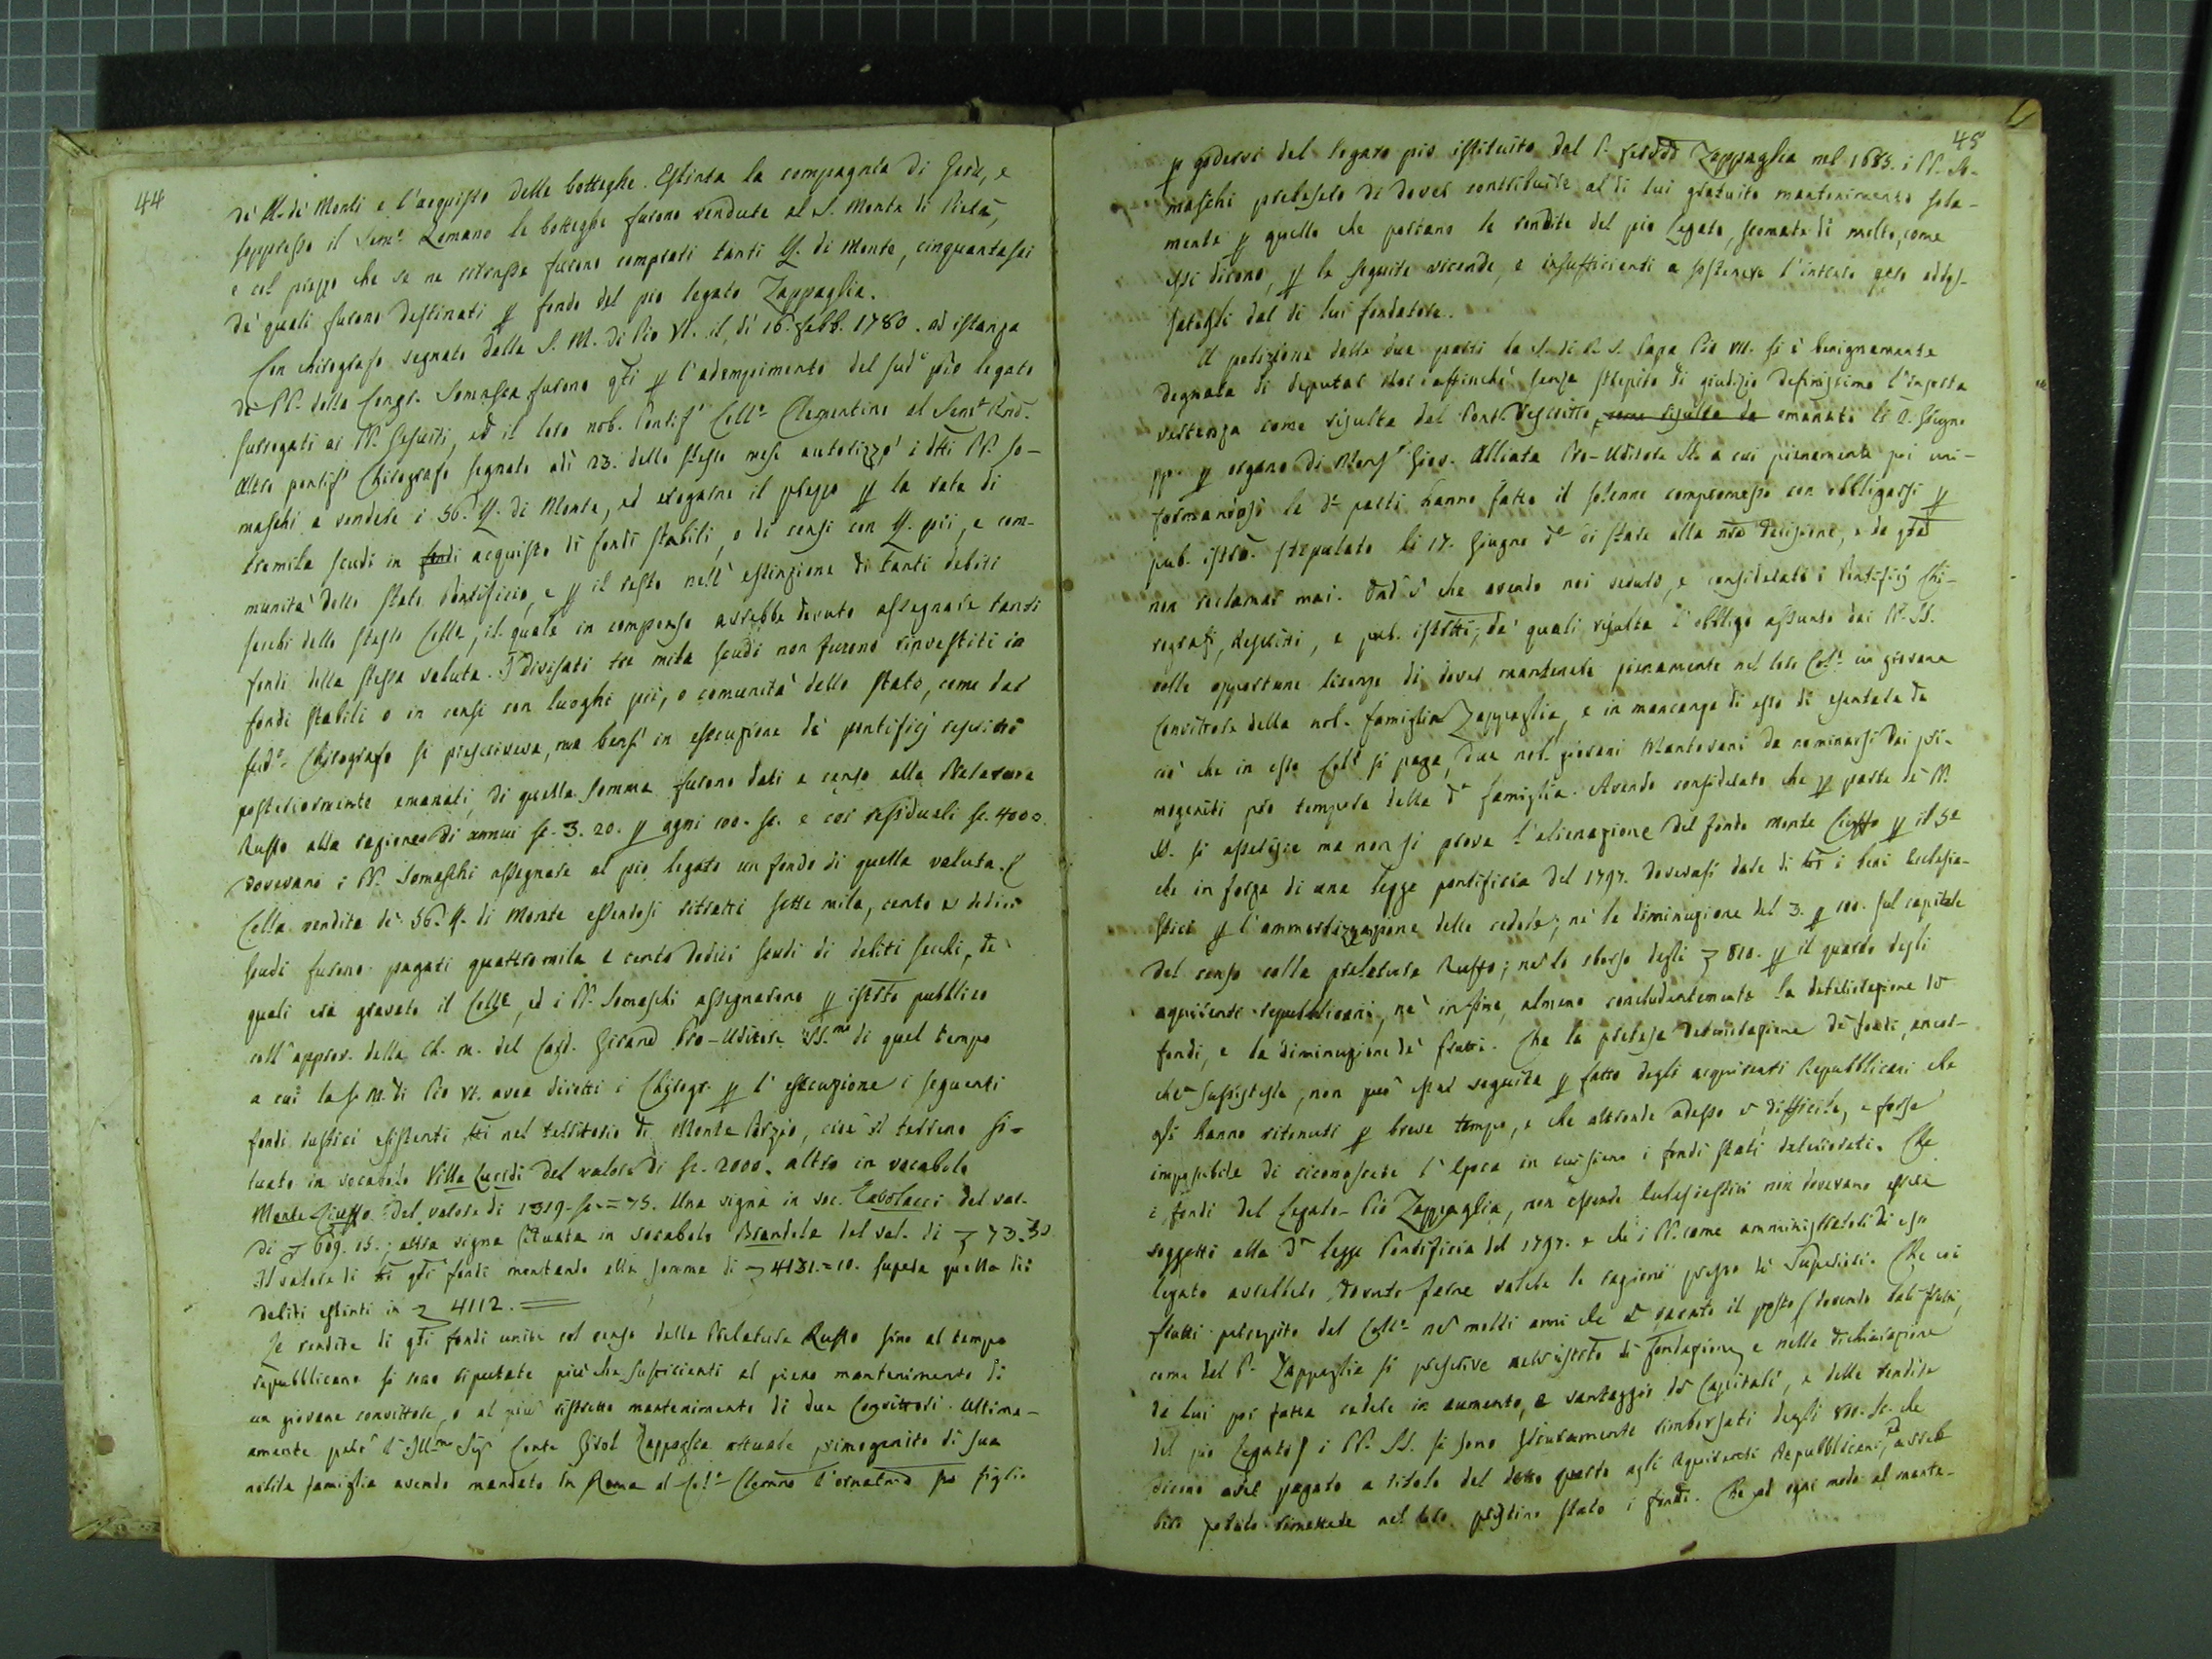 44
de' M. de' Monti e l'acquisto delle botteghe. Estinta la compagnia di Gesù, e
soppresso il Sem.º Romano le botteghe furono vendute al S. Monte di Pietà,
e col prezzo che se ne ritrasse furono comprati tanti LL. di Monte, cinquantasei
de' quali furono destinati p fondo del pio legato Zappaglia.
Con chirografo segnato dalla S. M. di Pio VI. il dì 16. Febb. 1780. ad istanza
de' PP. della Congr. Somasca furono qti p l'adempimento del sud.º pio legato
surrogati ai PP. Gesuiti, ed il loro nob. Pontif.º Coll.º Clementino al Sem.º Rom.
Altro pontif.º Chirografo segnato adì 23. dello stesso mese autorizzò i dtti PP. So-
maschi a vendere i 56. LL. di Monte, ed erogarne il prezzo p la rata di
tremila scudi in fondi acquisto di fondi stabili, o di censi con LL. pii, e com-
munità dello Stato Pontificio, e p il resto nell' estinzione di tanti debiti
fecebi dello stesso Colle, il quale in compenso avrebbe dovuto assegnare tanti
fondi della stessa valuta. I divisati tre mila scudi non furono rinvestiti in
fondi stabili o in censi con luoghi pii, o comunità dello stato, come dal
sud.º Chirografo si prescriveva, ma bensì in esecuzione de' pontificj rescritti
posteriormente emanati, di quella somma furono dati a censo alla Prelatura
Ruffo alla ragione di annui sc. 3. 20. p ogni 100. sc. e coi residuali sc. 4000
dovevano i PP. Somaschi assegnare al pio legato un fondo di quella valuta.
Colla vendita de' 56. LL. di Monte essendosi ritratti sette mila, cento e dodici
scudi furono pagati quattromila e cento dodici scudi di debiti fecebi, de'
quali era gravato il Colle, ed i PP. Somaschi assegnarono p istrto pubblico
coll' approv. della Ch. m. del Card. Giraud Pro-Uditore SS.mo di quel tempo
a cui la S. M. di Pio VI. avea diretti i Chirogr. p l' esecuzione i seguenti
fondi rustici esistenti tti nel territorio di Monte Porzio, cioè il terreno si-
tuato in vocabolo Villa Lucidi del valore di sc. 2000. altro in vocabolo
Monte Ciuffo del valore di 1319. sc. = 75. Una vigna in voc. Cavolacci del val.
di 609. 15.; altra vigna situata in vocabolo Brandola del val. di 73.30
Il valore di tti qti fondi montando alla somma di 4131. = 10. supera quella dei
debiti estinti in 4112. =
Le rendite di qti fondi unite col censo della Prelatura Ruffo sino al tempo
repubblicano si sono riputate più che sufficienti al pieno mantenimento di
un giovane convittore, o al più ristretto mantenimento di due Convittori. Ultima-
mente però l' Ill.mo Sig.r Conte Girol. Zappaglia attuale primogenito di sua
nobile famiglia avendo mandato in Roma al Col.º Clemño l'ornatmo suo figlio
45
p godervi del legato pio istituito dal P. Zappaglia nel 1683. i PP. So-
maschi pretesero di dover contribuire al di lui gratuito mantenimento sola-
mente p quello che portano le rendite del pio Legato, scemate di molto, come
essi dicono, p le seguite vicende, e insufficienti a sostenere l'intero peso addos-
satogli dal di lui fondatore.
A petizione delle due parti la S. di N. S. Papa Pio VII. si è benignamente
degnata di deputar Noi affinché senza strepito di giudizio definissimo l'insorta
vertenza come risulta dal Pont. Rescritto, come risulta da emanato li 2. Giugno
pp. p organo di Mons.r Giov. Alliata Pro-Uditore SS. a cui pienamente poi uni-
formandosi le d.e parti hanno fatto il solenne compromesso con obbligarsi p
pub. istro. stipulato li 17. Giugno d.º di stare alla nra decisione, e da qta
non reclamar mai. Ond' è che avendo noi veduto, e considerato i Pontificj Chi-
rografi, Rescritti, e pub. istrtti, da' quali risulta l'obbligo assunto dai PP. SS.
colle opportune licenze di dover mantenere pienamente nel loro Col.º un giovane
Convittore della nob. famiglia Zappaglia, e in mancanza di esso di esentare da
ciò che in esso Coll.º si paga, due nob. giovani Mantovani da nominarsi dai pri-
mogeniti pro tempore della d.a famiglia. Avendo considerato che p parte de' PP.
SS. si asserisce ma non si prova l'alienazione del fondo monte Ciuffo p il 5º
che in forza di una legge pontificia del 1797. dovevasi dare di tti i beni Ecclesia-
stici p l'ammortizzazione delle cedole; né la diminuzione del 3. p 100. sul capitale
del censo colla prelatura Ruffo; né lo sborso degli 810. p il quarto degli
aquirenti repubblicani, né in fine, almeno concludentemente la deteriorazione de
fondi, e la diminuzione de' frutti. Che la pretesa deteriorazione de' fondi, ancor-
che sussistesse, non può esser seguita p fatto degli acquirenti Repubblicani che
gli hanno ritenuti p breve tempo, e che altronde adesso è difficile, e forse
impossibile di riconoscere l'Epoca in cui siano i fondi stati deteriorati. Che
i fondi del Legato Pio Zappaglia, non essendo Ecclesiastici non dovevano essere
soggetti alla d.a legge Pontificia del 1797. e che i PP. come amministratori di esso
legato avrebbero dovuto farne valere le ragioni presso i Superiori. Che coi
frutti percepiti dal Coll.º nei molti anni che è vacato il posto (dovendo tali frutti,
come dal P. Zappaglia si prescrive nell' istrto di fondazione e nella dichiarazione
da lui poi fatta cedere in aumento, e vantaggio de Capitali, e delle rendite
del pio Legato) i PP. SS. si sono sicuramente rimborsati degli 810. sc. che
dicono aver pagato a titolo del detto quarto agli Aquirenti Repubblicani, ed avreb-
bero potuto rimettere nel loro pristino stato i fondi. Che ad ogni modo al mante-